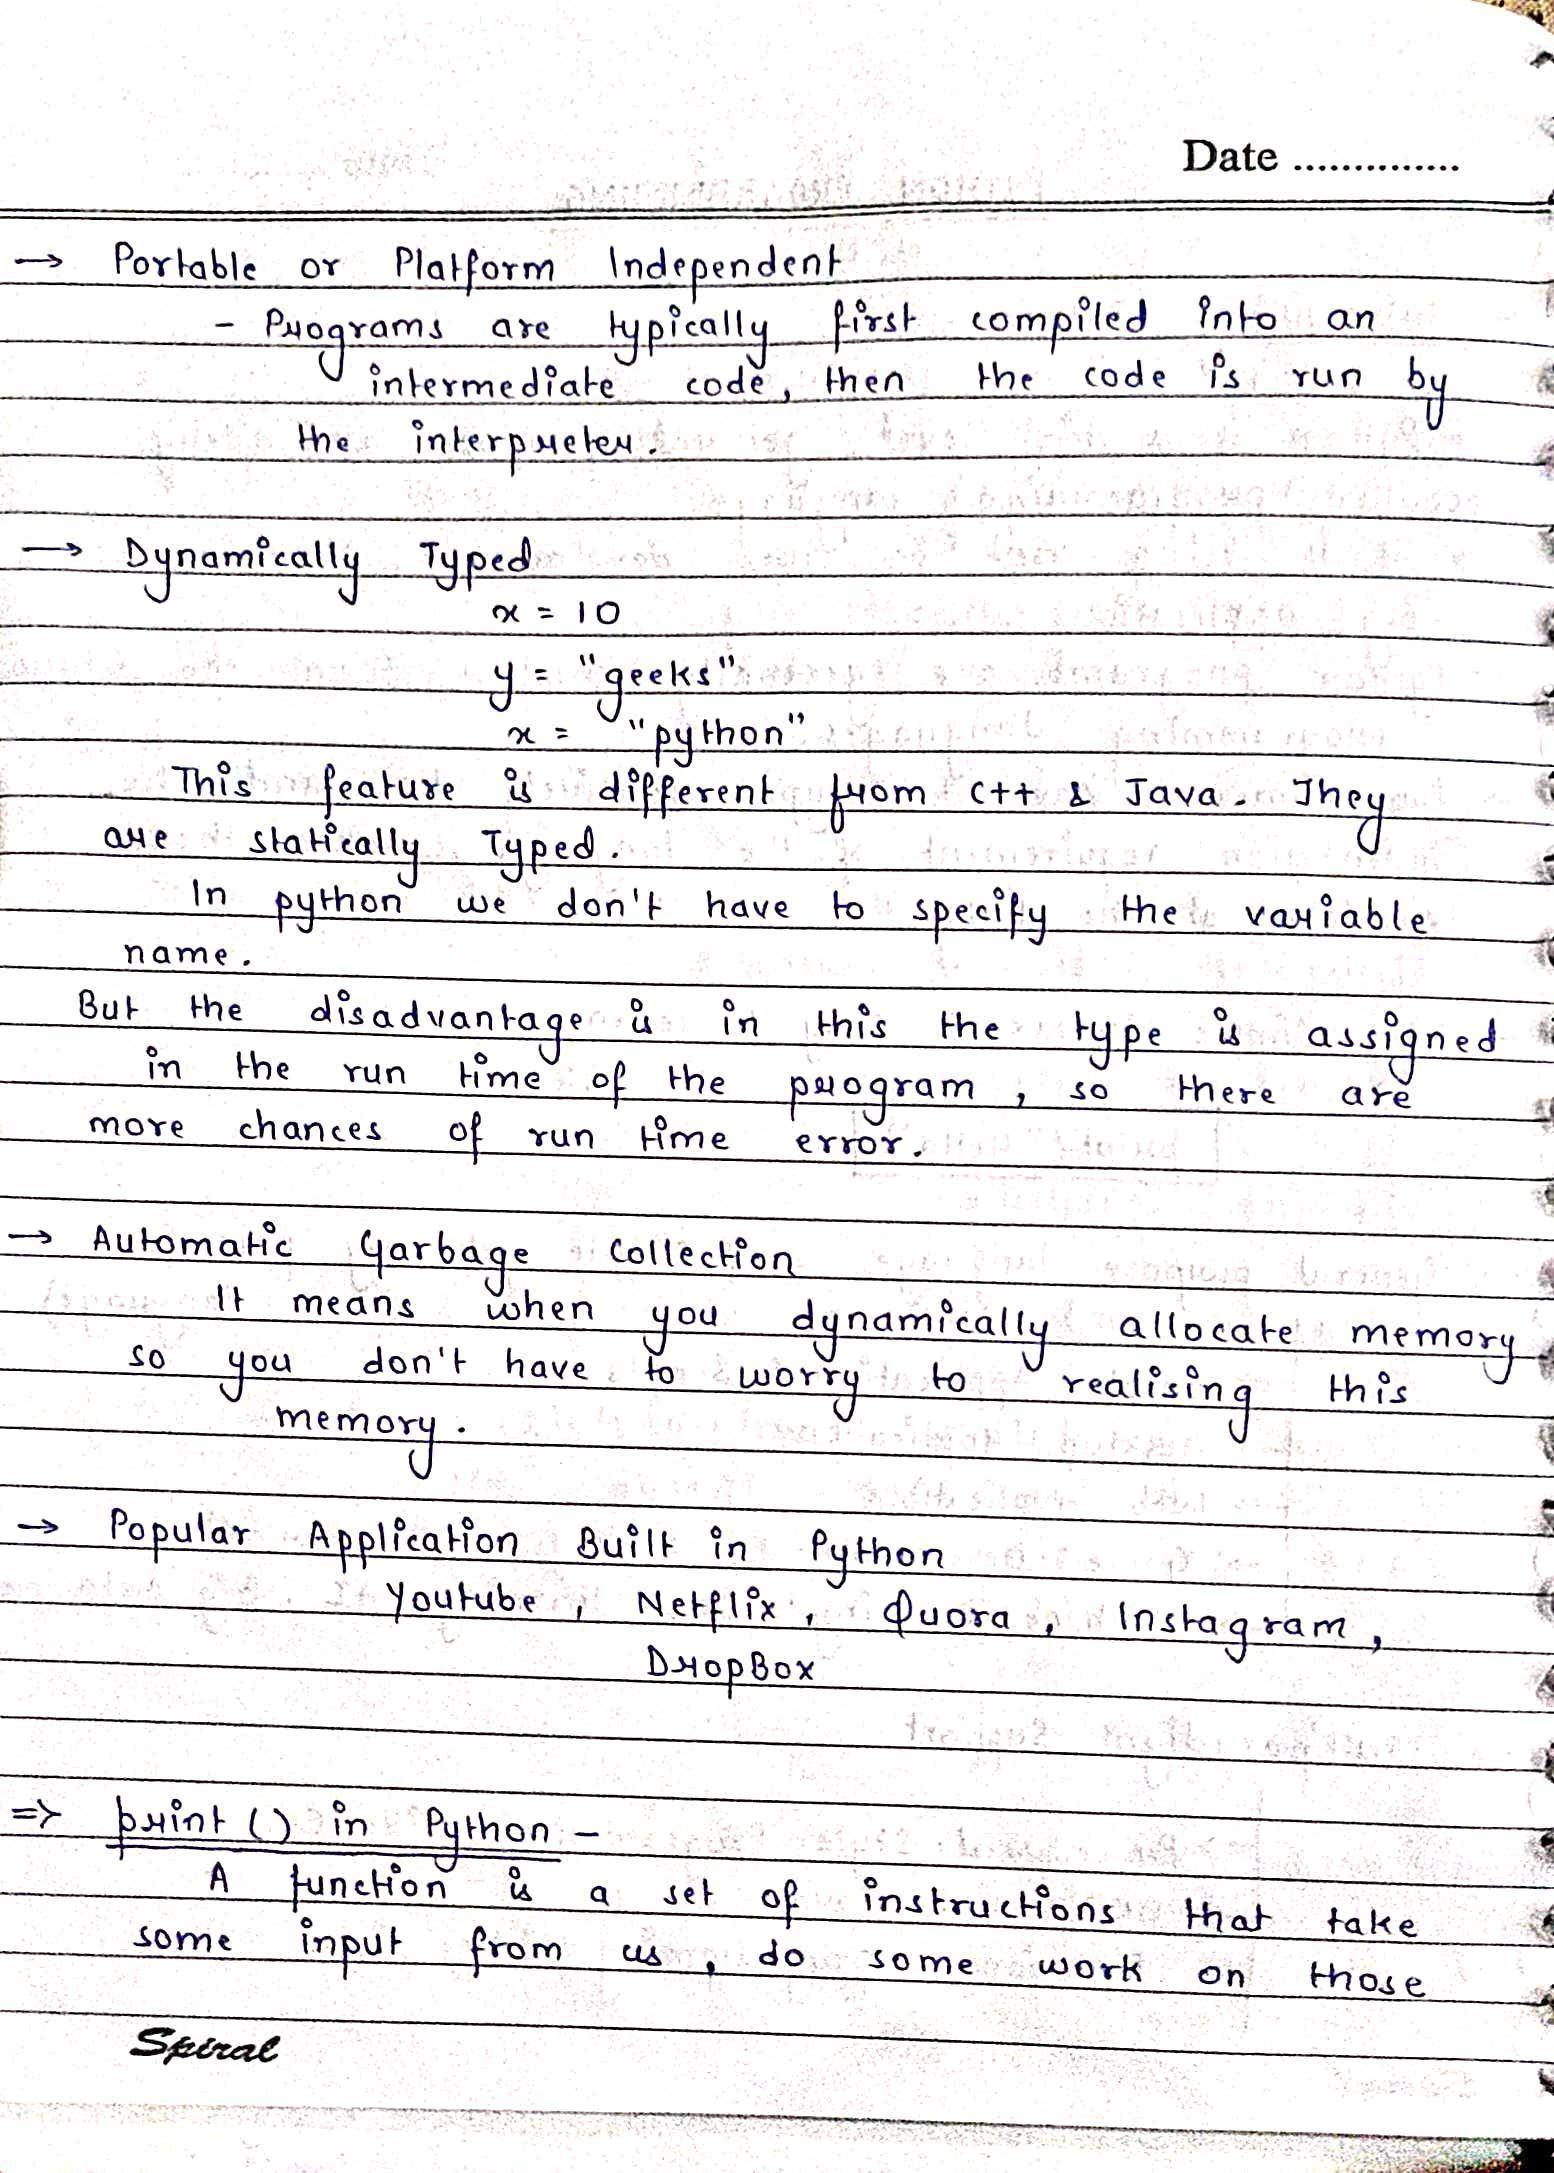 Date ..............
→ Portable or Platform Independent
- Programs are typically first compiled into an
intermediate code, then the code is run by
the interpreter.
→ Dynamically Typed
x = 10
y = "geeks"
x = "python"
This feature is different from C++ & Java. They
are statically Typed.
In python we don't have to specify the variable
name.
But the disadvantage is in this the type is assigned
in the run time of the program, so there are
more chances of run time error.
→ Automatic Garbage Collection
It means when you dynamically allocate memory
so you don't have to worry to realising this
memory.
→ Popular Application Built in Python
Youtube, Netflix, Quora, Instagram,
DropBox
=> print () in Python -
A function is a set of instructions that take
some input from us, do some work on those
Spiral